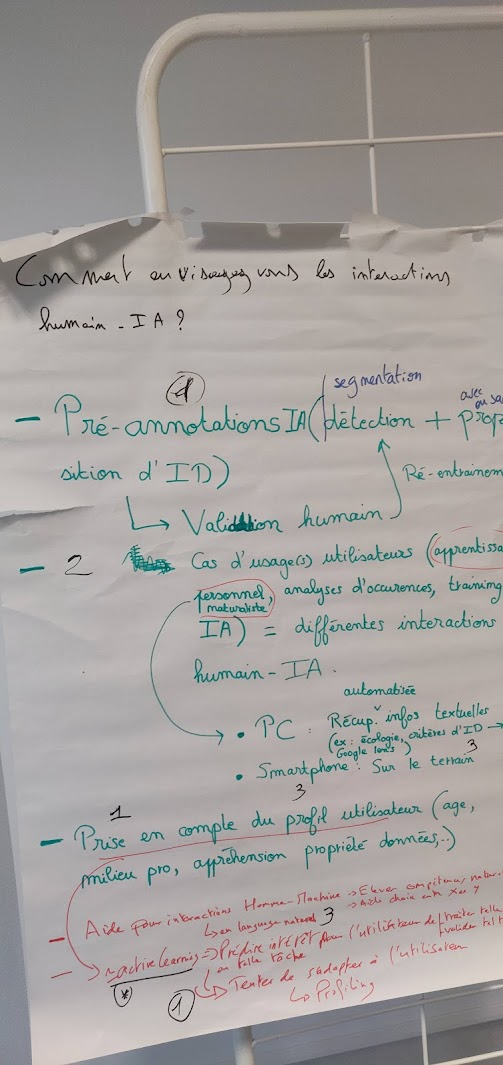 Comment envisagez vous les interactions
humain - IA ?
1
segmentation
avec
ou sa
- Pré-annotations IA (détection + prop
sition d'ID)
Ré-entrainem
↳ Validation humain
- 2 Cas d'usage(s) utilisateurs (apprentissa
personnel, analyses d'occurences, training
naturaliste
IA) = différentes interactions
humain - IA.
automatisée
• PC : Récup. infos textuelles
(ex : écologie, critères d'ID →
Google lens)
• Smartphone : Sur le terrain
3
3
1
- Prise en compte du profil utilisateur (age,
milieu pro, appréhension propriété données,..)
- Aide pour interactions Homme-Machine → Elever compétences natur
↳ en language naturel 3 → Aide choix entre X ou Y
- → active learning => Prédire intérêt pour l'utilisateur de traiter telle
ou telle tâche
valider tel
(*)
1 ↳ Tenter de s'adapter à l'utilisateur
↳ Profiling